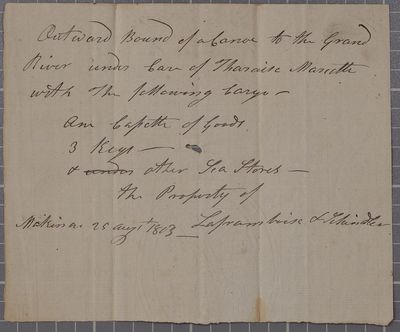 Outward Bound of a Canoe to the Grand
River under Care of Tharaise Marcotte
with the following Cargo –
One Cassette of Goods.
3 Kegs –
& under other Sea Stores –
the Property of
Mākina 25 augt 1803 – Laframboise & Schindler